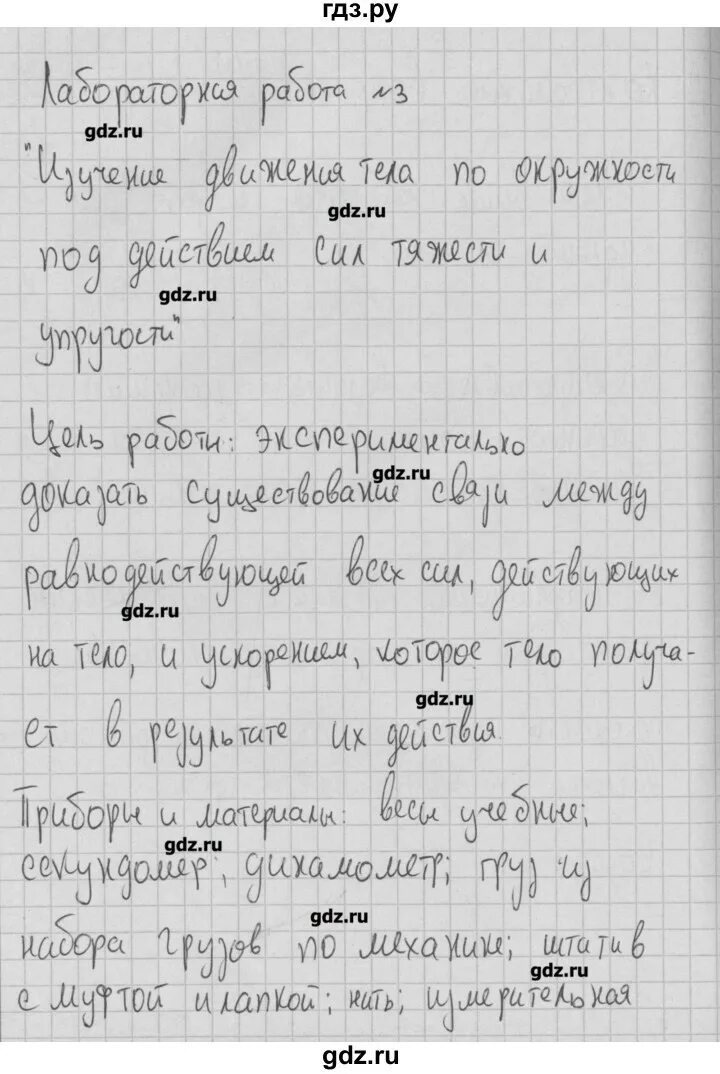 гдз.ру
Лабораторная работа №3
gdz.ru
"Изучение движения тела по окружности
gdz.ru
под действием сил тяжести и
gdz.ru
упругости"
Цель работы: экспериментально
gdz.ru
доказать существование связи между
равнодействующей всех сил, действующих
gdz.ru
на тело, и ускорением, которое тело получа-
gdz.ru
ет в результате их действия.
Приборы и материалы: весы учебные;
gdz.ru
секундомер; динамометр; груз из
gdz.ru
набора грузов по механике; штатив
gdz.ru
с муфтой и лапкой; нить; измерительная
gdz.ru